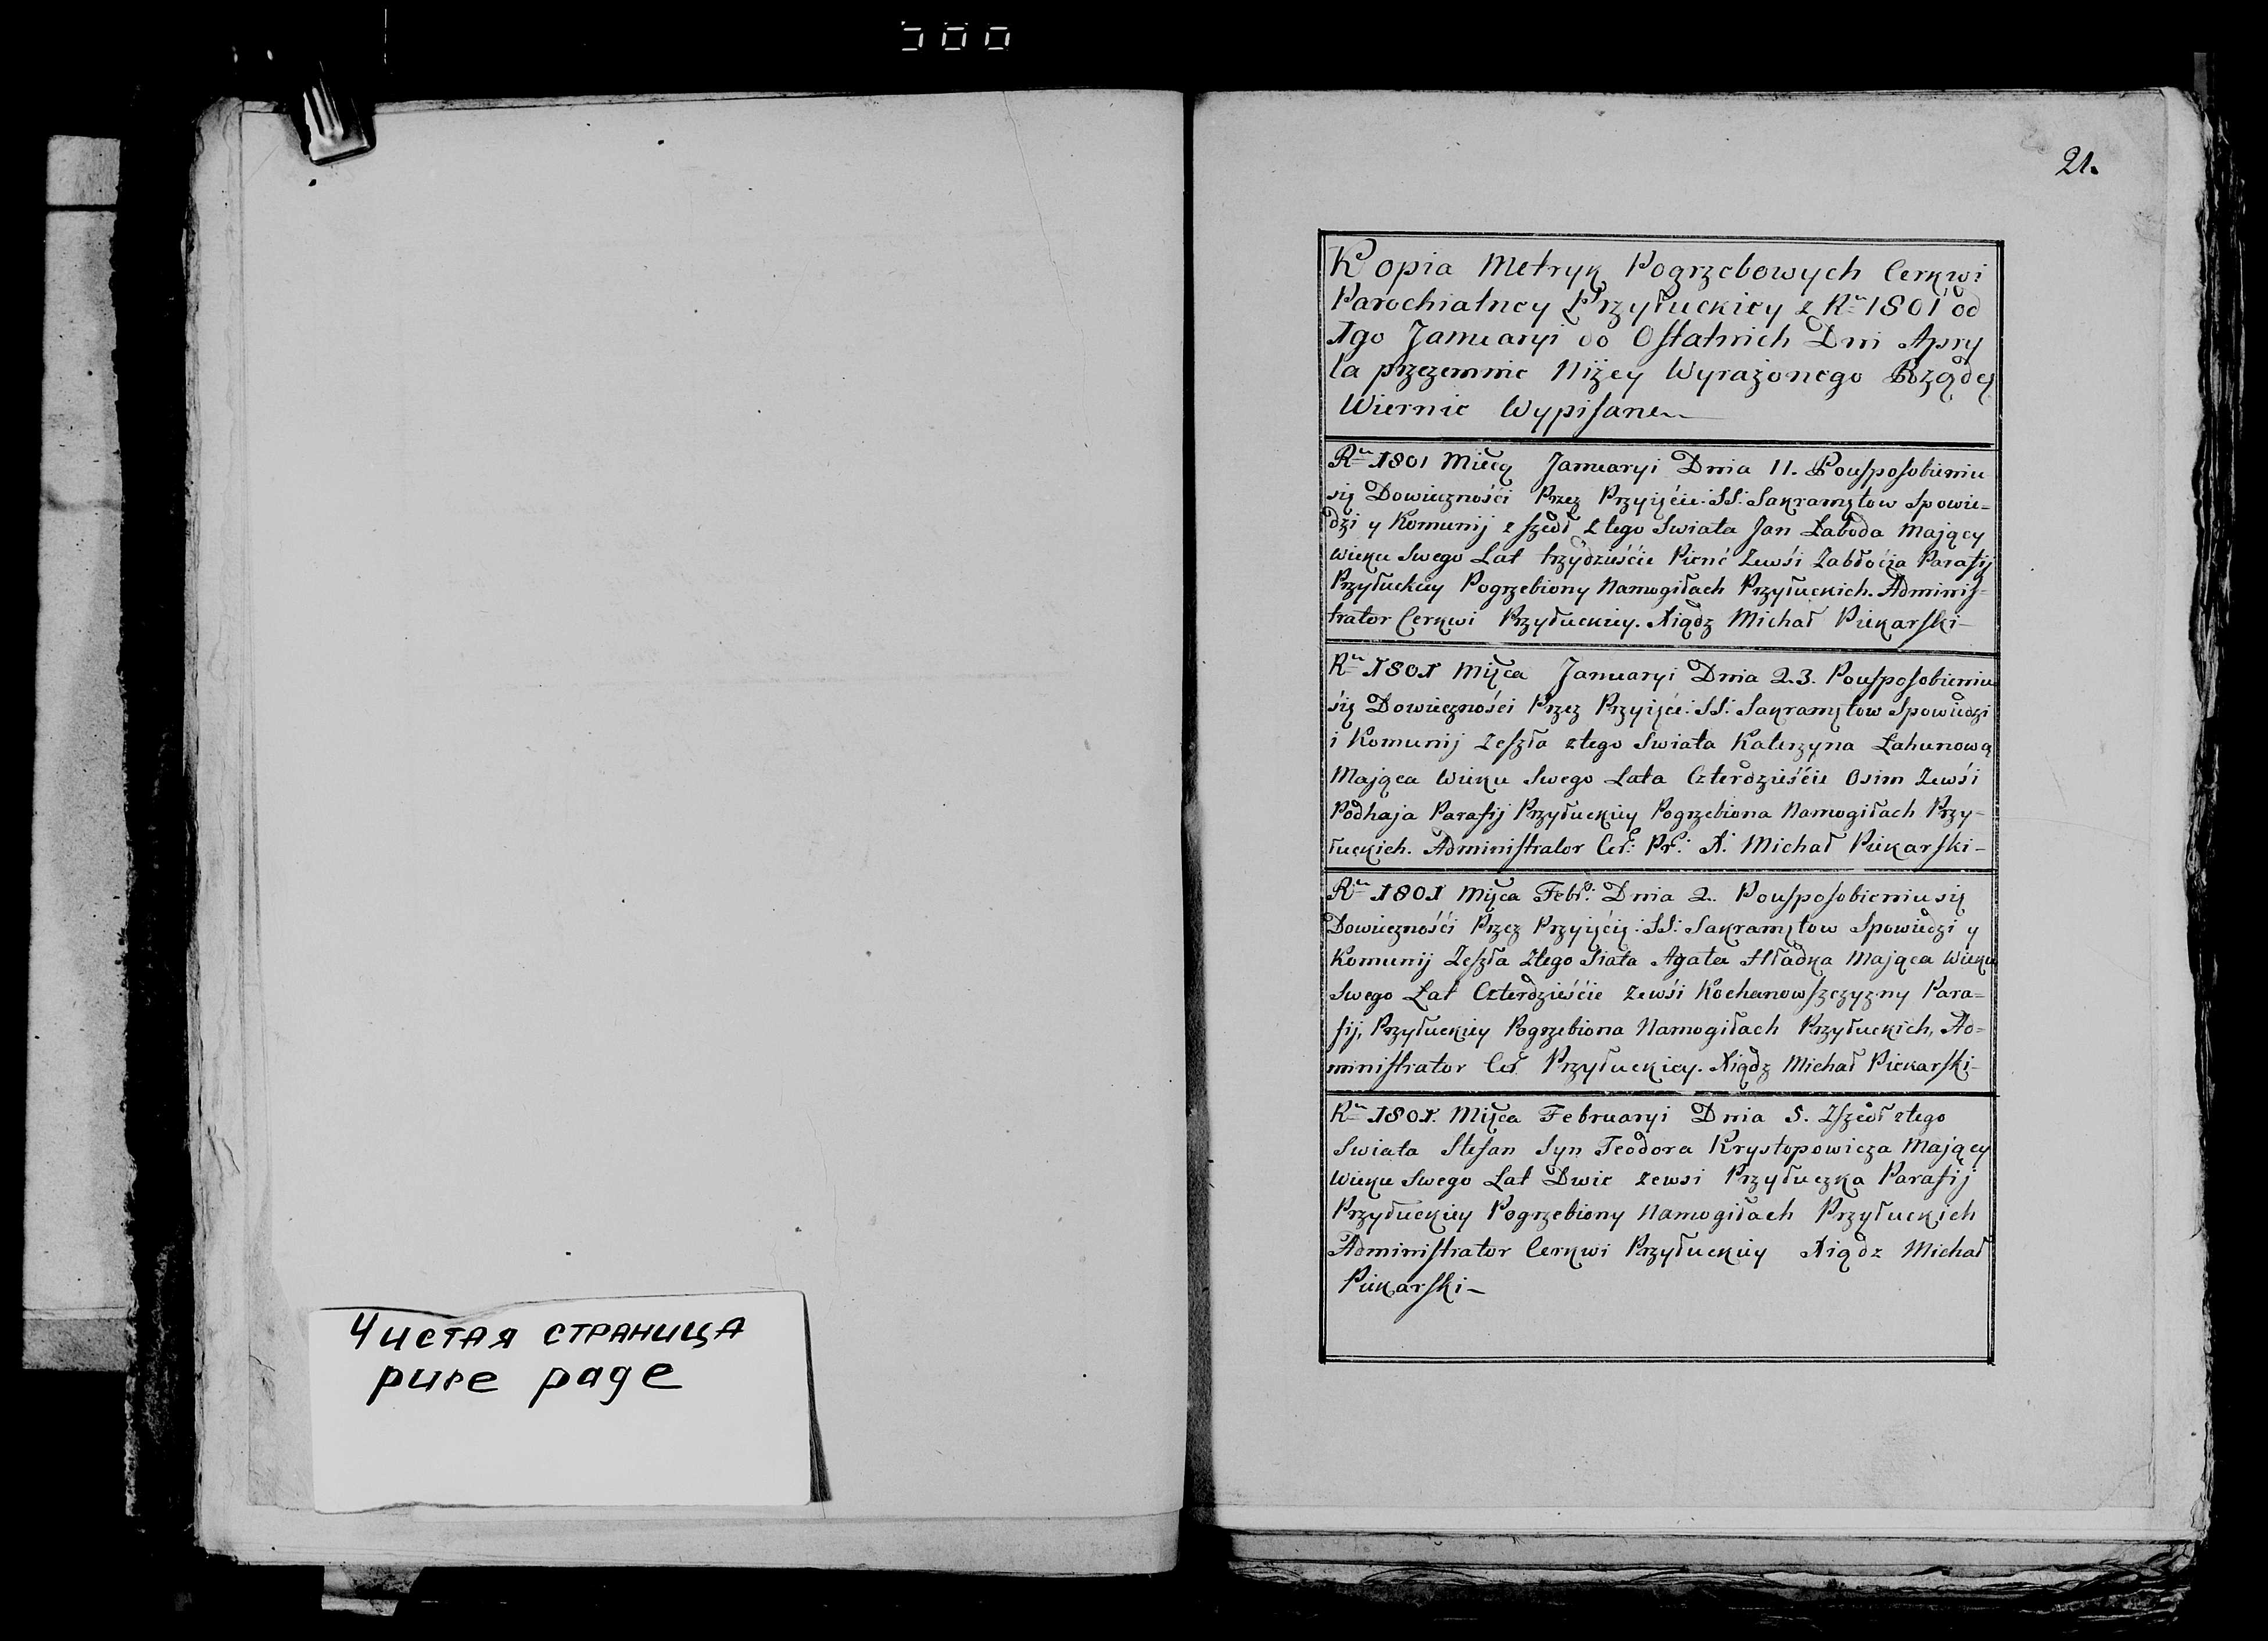 Чистая страница
pure page
21.
Kopia Metryk Pogrzebowych Cerkwi
Parochialney Przyłuckiey z Rᵘ 1801 od
1go Januaryi do Ostatnich Dni Apry
la przezemnie Niżey Wyrażonego Rządcę
Wiernie Wypisane
Rᵘ 1801 Miecą Januaryi Dnia 11. Pousposobieniu
się Dowieczności Przez Przyięcie :SS: Sakramętow Spowie=
dzi y Komunij z szedł z tego Swiata Jan Łaboda Mający
wieku Swego Lat trzydzieście Pienć Zewśi Zabłocia Parafij
Przyłuckiey Pogrzebiony Namogiłach Przyłuckich. Adminis=
trator Cerkwi Przyłuckiey. Xiądz Michał Piekarski
Rᵘ 1801 Mięca Januaryi Dnia 23. Pousposobieniu
śię Dowiecznośei Przez Przyięcie :SS: Sakramętow Spowiedzi
i Komunij Zeszła ztego Swiata Katerzyna Łahunową
Mająca Wieku Swego Lata Czterdzieśćie Osim Zewśi
Podhaja Parafij Przyłuckiey Pogrzebiona Namogiłach Przy=
łuckich. Administrator Cer: Pr: X. Michał Piekarski
Rᵘ 1801 Mięca Febr: Dnia 2. Pousposobieniu się
Dowiecznośći Przez Przyięcię :SS: Sakramętow Spowiedzi y
Komunij Zeszła Ztego Siata Agata Hładka Mająca Wieku
Swego Łat Czterdzieśćie Zewśi Kochanowszczyzny Para=
fij, Przyłuckiey Pogrzebiona Namogiłach Przyłuckich, Ad=
ministrator Cer Przyłuckiey. Xiądz Michał Piekarski
Rᵘ 1801. Mięca Februaryi Dnia 5. Zszedł ztego
Swiata Stefan Syn Teodora Krystopowicza Mający
Wieku Swego Lat Dwie zewsi Przyłuczka Parafij
Przyłuckiey Pogrzebiony Namogiłach Przyłuckich
Administrator Cerkwi Przyłuckiey Xiądz Michał
Piekarski